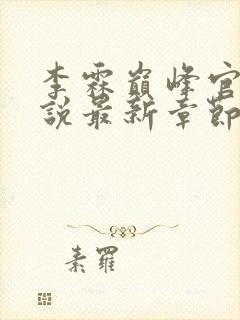 李霖巅峰官
说最新章节
素罗